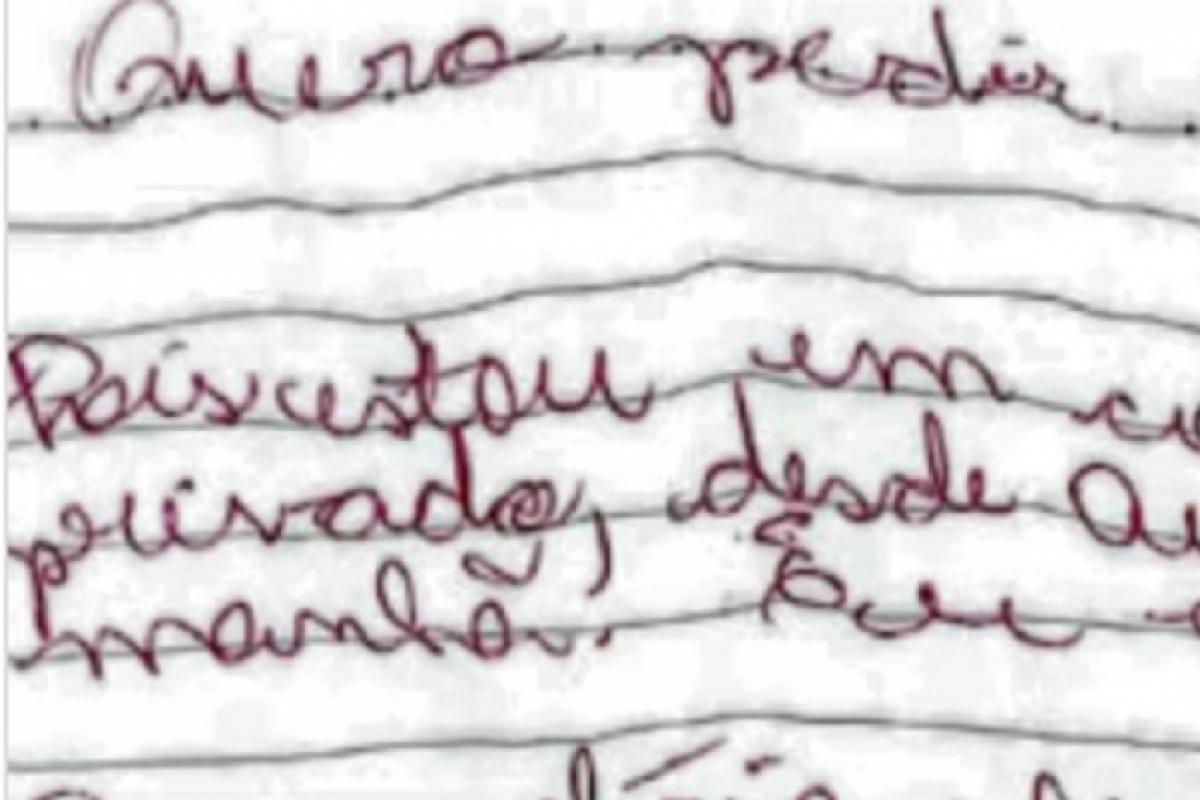 Quero pedir
Pois estou em
privado, desde
manhã. Eu